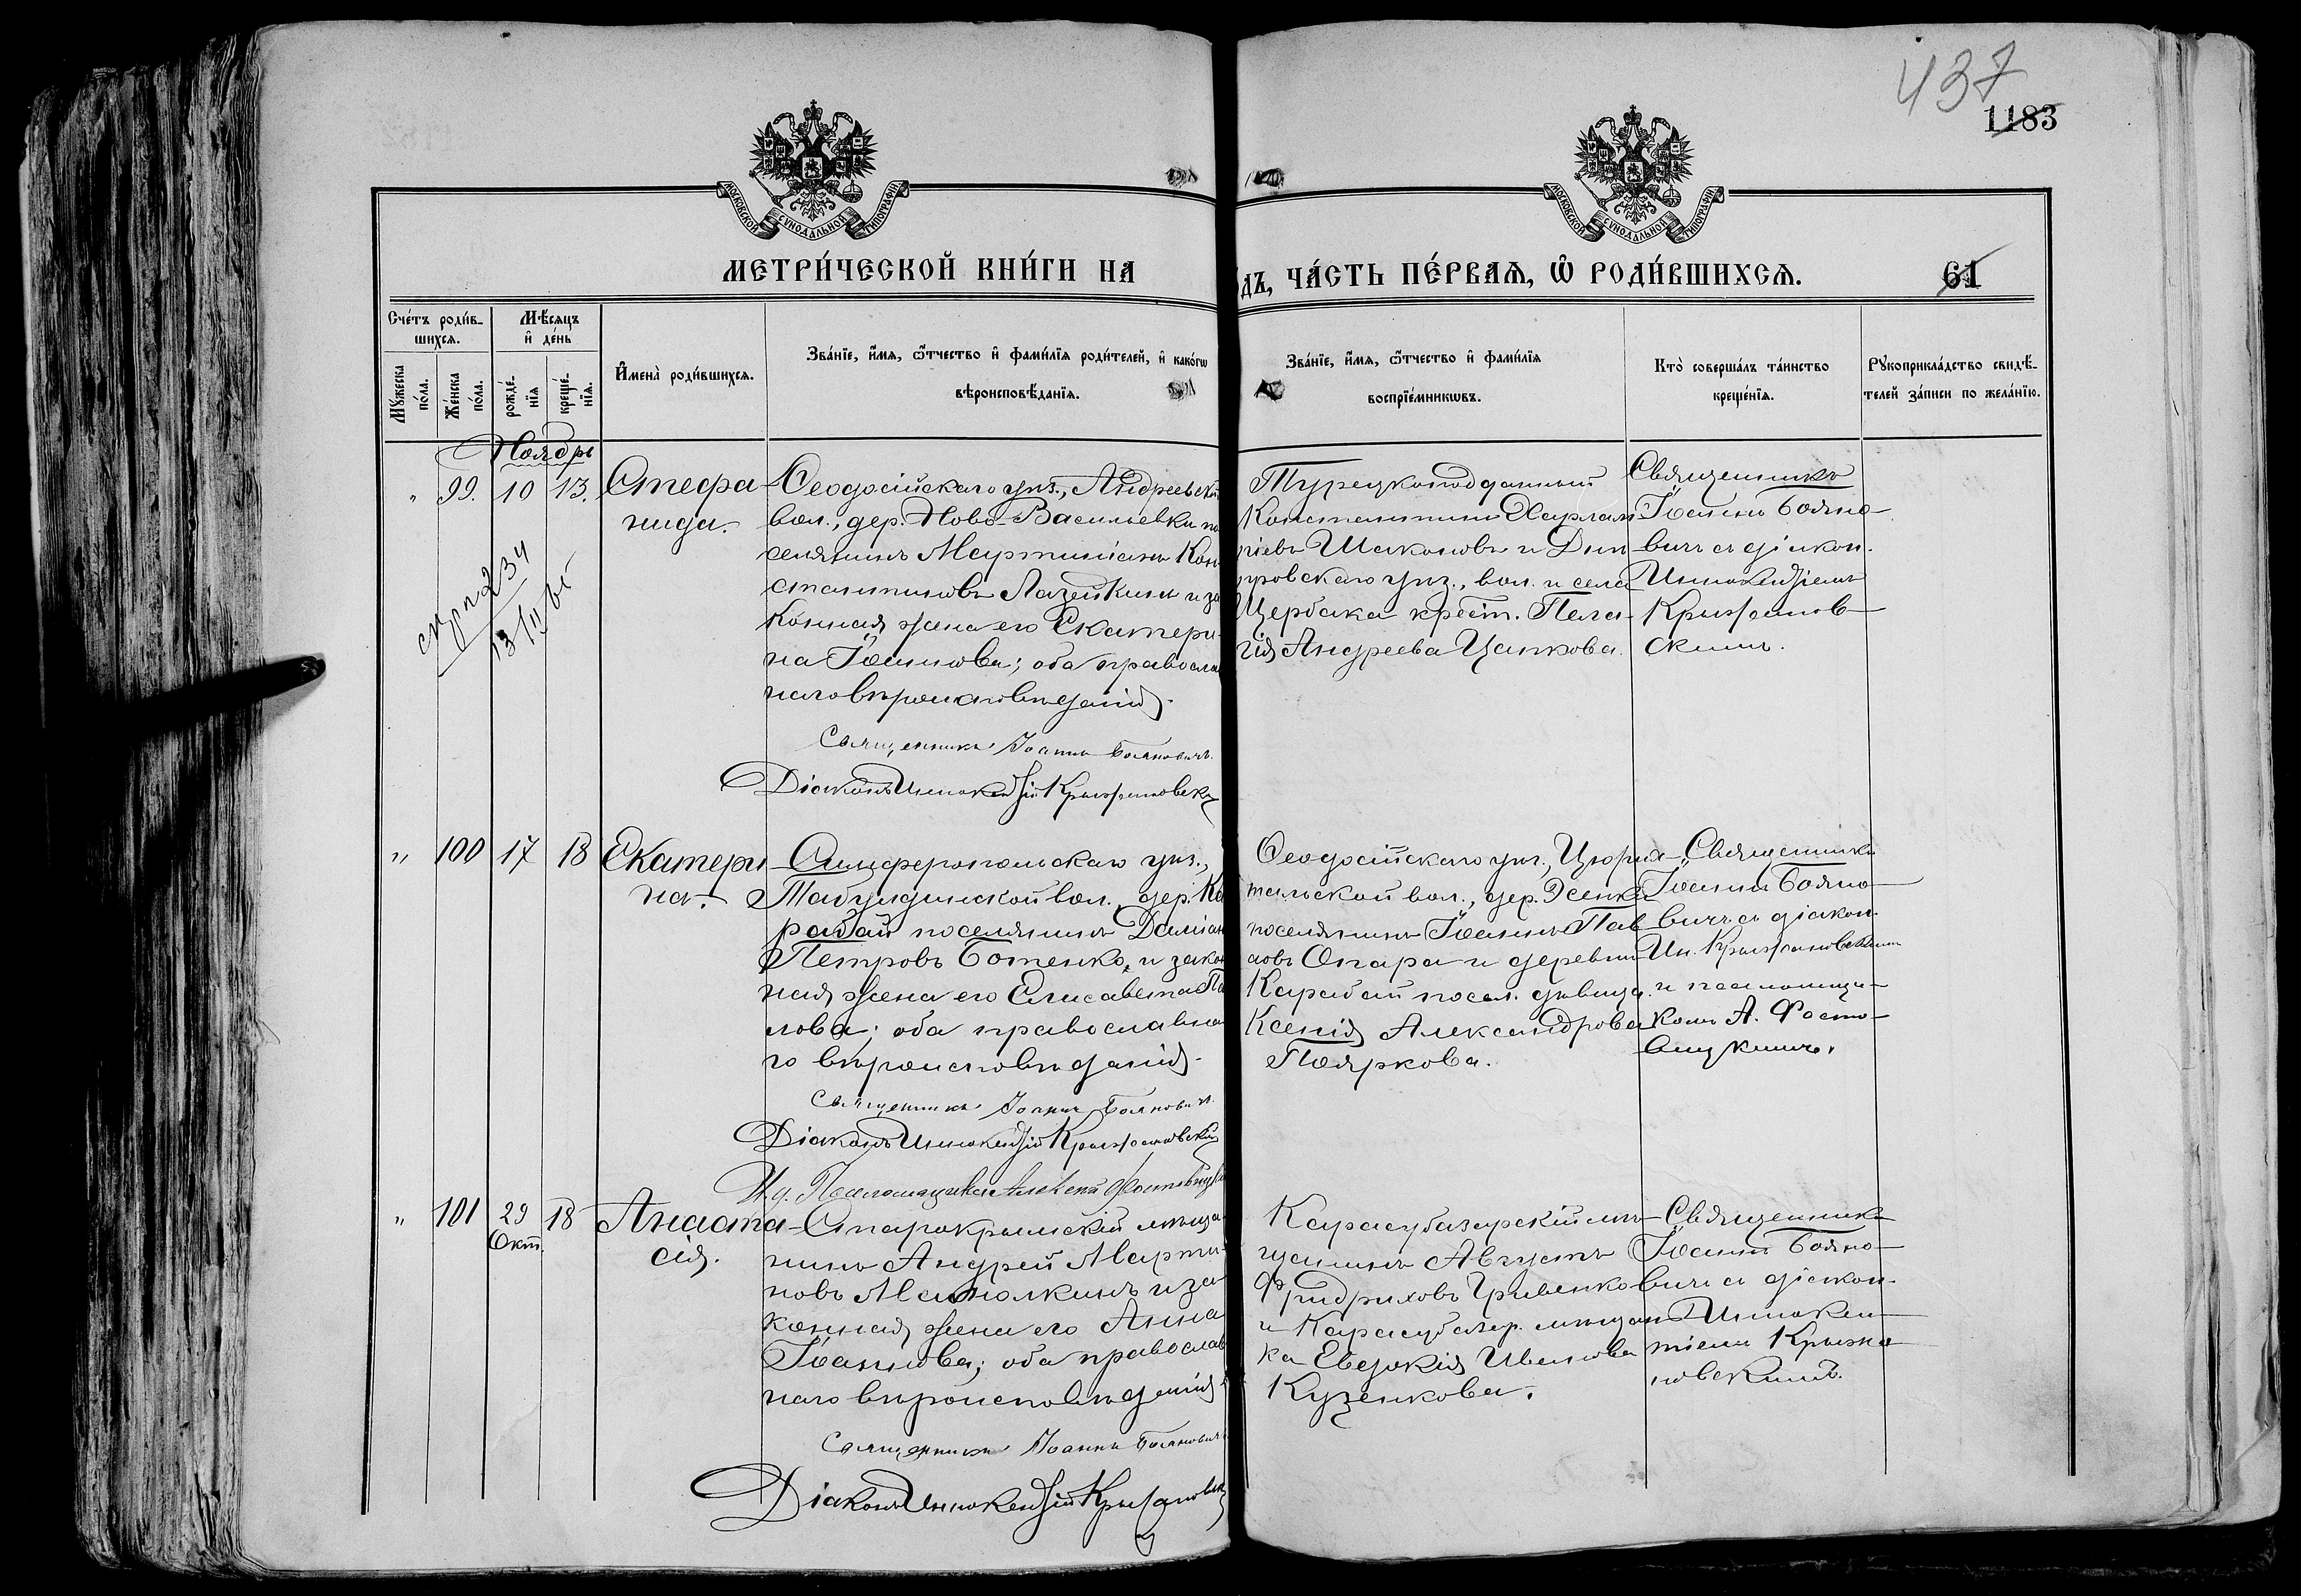 437
1183
МОСКОВСКОЙ СУНОДАЛЬНОЙ ТИПОГРАФІИ
МОСКОВСКОЙ СУНОДАЛЬНОЙ ТИПОГРАФІИ
МЕТРИ́ЧЕСКОЙ КНИ́ГИ НА
ДЪ, ЧА́СТЬ ПЕ́РВАѦ, Ѡ҆ РОДИ́ВШИХСѦ.
61
Сче́тъ роди́в-
шихсѧ.
Мѣ́сѧцъ
и҆ де́нь
Мꙋ́жеска
по́ла.
Же́нска
по́ла.
рожде́-
нїѧ
креще́-
нїѧ.
И҆мена̀ роди́вшихсѧ.
Зва́нїе, и҆́мѧ, ѻ҆́тчество и҆ фами́лїѧ роди́телей, и҆ како́гѡ
вѣроисповѣ́данїѧ.
Зва́нїе, и҆́мѧ, ѻ҆́тчество и҆ фами́лїѧ
воспрїе́мникѡвъ.
Кто̀ соверша́лъ та́инство
креще́нїѧ.
Рꙋкоприкла́дство свидѣ́-
телей за́писи по жела́нїю.
Ноябрь
" 99. 10 13. Стефа
нида.
234
13/11
Ѳеодосійскаго уѣз., Андреевской
вол., дер. Ново-Васильевки по
селянинъ Мартиніанъ Кон
стантиновъ Лазейкинъ и за
конная жена его Екатери-
на Іоаннова; оба правосла
наго вѣроисповѣданія.
Священникъ Іоаннъ Бояновичъ.
Діаконъ Иннокентій Крыжановскій
Турецкоподданный
Константинъ Харлам
ріевъ Шаконовъ и Днѣ
провскаго уѣз., вол. и села
Щербака крест. Пела-
гія Андреева Цапкова.
Священникъ
Іоаннъ Бояно-
вичъ съ діакон.
Иннокентіемъ
Крыжанов-
скимъ.
" 100 17 18 Екатери
на.
Симферопольскаго уѣз.,
Табулдинской вол., дер. Ка
рабай поселянинъ Даміан
Петровъ Ботенко, и закон
ная жена его Елисавета Па
лова; оба православна
го вѣроисповѣданія.
Священникъ Іоаннъ Бояновичъ.
Діаконъ Иннокентій Крыжановскій
И.д. Псаломщика Алексей
Ѳеодосійскаго уѣз., Цюрих-
тальской вол., дер. Эсенки
поселянинъ Іоаннъ Пав
ловъ Опара и деревни
Карабай посел. дѣвица
Ксенія Александрова
Пояркова.
Священникъ
Іоаннъ Бояно-
вичъ съ діакон.
Ин. Крыжановскимъ
и псаломщи-
комъ А. Фасто-
вецкимъ.
" 101 29 18 Анаста
Окт. сія.
Старокрымскій мѣща-
нинъ Андрей Марти-
новъ Манолкинъ и за
конная жена его Анна
Іоаннова; оба православ
наго вѣроисповѣданія
Священникъ Іоаннъ Бояновичъ
Діаконъ Иннокентій Крыжановскій
Карасубазарскій мѣ-
щанинъ Августъ
Фридриховъ Гривенко
и Карасубазар. мѣщан
ка Евдокія Иванова
Кузенкова.
Священникъ
Іоаннъ Бояно-
вичъ съ діакон-
Иннокен-
тіемъ Крыжа-
новскимъ.